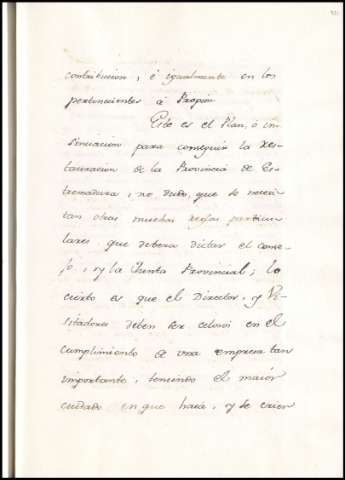 contribucion, è igualmente en los
pertenecientes á Propios.
Este es el Plan, ó in-
sinuacion para conseguir la res-
tauracion de la Provincia de Es-
tremadura, no dudo, que se necesi-
tan otras muchas reglas particu-
lares que deberá dictar el conse-
jo, ry la Junta Provincial; lo
cierto es que el Director, y Vi-
sitadores deben ser celosos en el
cumplimiento de una empresa tan
importante, teniendo el maior
cuidado en que haia, y se crien